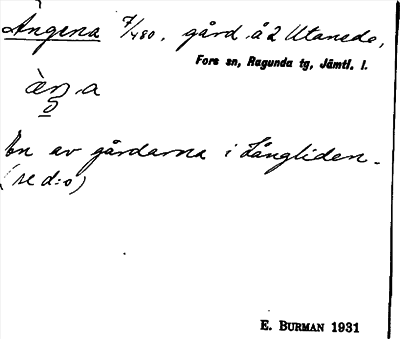 Ängena 7/480. gård å 2 Utanede,
Fors sn, Ragunda tg, Jämtl. l.
En av gårdarna i Långliden.
(se d:o)
E. BURMAN 1931